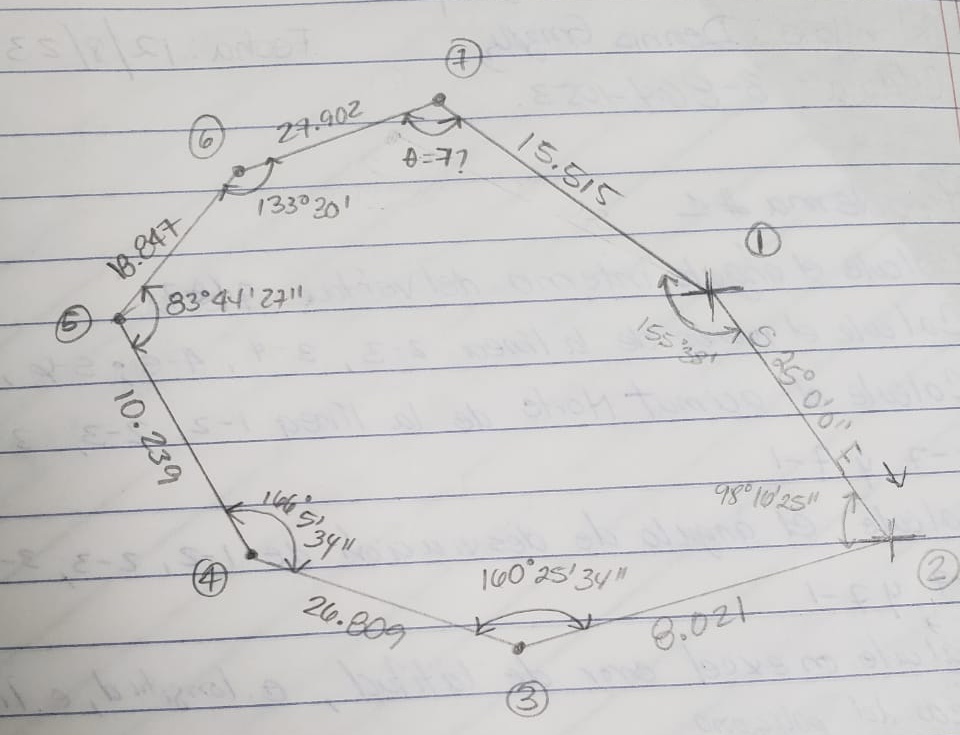 7
6
27.902
θ=7?
15.515
133°20'
1
18.847
5
83°44'27"
155°38'
S 25°0'0" E
10.239
98°10'25"
166°5'34"
4
160°25'34"
2
26.809
8.021
3